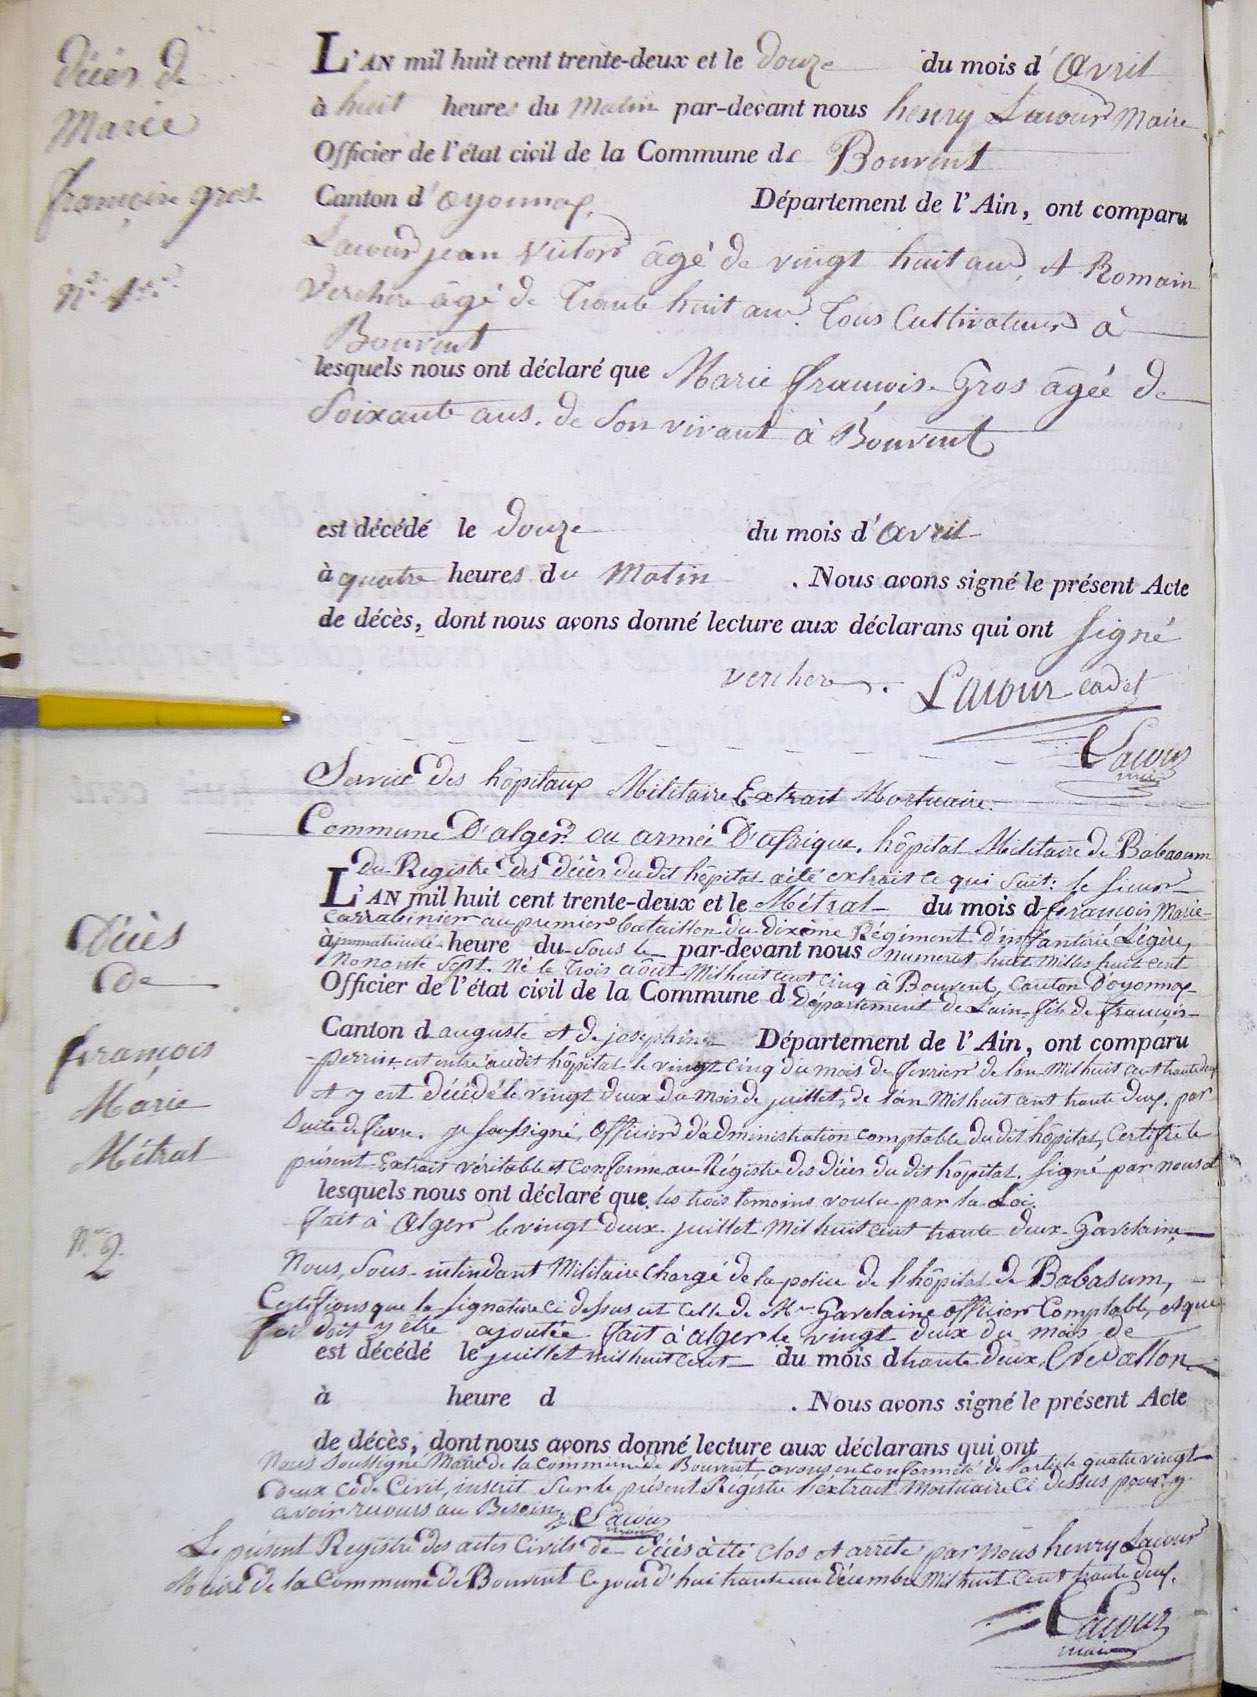 Décès de
Marie
françoise gros
N.° 1.er
L'AN mil huit cent trente-deux et le douze du mois d'avril
à huit heures du matin par-devant nous henry Lacour Maire
Officier de l'état civil de la Commune de Bouvent
Canton d'oyonnax, Département de l'Ain, ont comparu
Lacour jean victor âgé de vingt huit ans, et Romain
Verchere âgé de trante huit ans. Tous Cultivateurs à
Bouvent
lesquels nous ont déclaré que Marie françoise Gros âgée de
Soixante ans. de Son vivant à Bouvent
est décédé le douze du mois d'avril
à quatre heures du Matin. Nous avons signé le présent Acte
de décès, dont nous avons donné lecture aux déclarans qui ont signé
verchere. Lacour cadet
Lacour
maire
Service des hôpitaux Militaire Extrait Mortuaire.
Commune D'alger ou armée D'afrique. hôpital Militaire de Babasum
du Registre des décès du dit hôpital a été extrait ce qui suit: le sieur
L'AN mil huit cent trente-deux et le Métral du mois d françois Marie
Carrabinier au premier bataillon du dixème Régiment d'infanterie Légère,
à immatriculé heure du sous le par-devant nous numeros huit milles huit cent
Nonante Sept. Né le trois août Mil huit cent cinq à Bouvent, Canton D'oyonnax
Officier de l'état civil de la Commune d Département de L'ain fils de françois
Canton d auguste et de josephine Département de l'Ain, ont comparu
perrin est entré audit hôpital le vingt cinq du mois de fevrier de l'an Mil huit cent trante deux
et y est décédé le vingt deux du mois de juillet, de l'an Mil huit cent trante deux. par
Suite de fievre. je soussigné, officier d'administration comptable du dit hôpital, Certifie le
présent Extrait véritable et conforme au Régistre des décès du dit hôpital. signé par nous et
lesquels nous ont déclaré que les trois temoins voulu par la Loi.
fait à Alger le vingt deux juillet Mil huit cent trante deux Gavelaine
Nous, Sous-intendant Militaire Chargé de la police de l'hôpital de Babasum,
Certifions que la signature ci dessus est celle de Mr. Gavelaine officier Comptable, et que
foi doit y être ajoutée fait à alger le vingt deux du mois de
est décédé le juillet mil huit cent du mois d trante deux, Chevallon
à heure d . Nous avons signé le présent Acte
de décès, dont nous avons donné lecture aux déclarans qui ont
Nous soussigné Maire de la Commune de Bouvent avons en conformité de l'article quatre vingt
deux Code Civil, inscrit sur le présent Régistre l'extrait Mortuaire ci dessus pour y
avoir recours au Besoin, Lacour
maire
Décès
de
françois
Marie
Métral
N.° 2
Le présent Registre des actes Civils de décès à été clos et arrêté par nous henry Lacour
Maire de la Commune de Bouvent Ce jour d'hui trante un Décembre Mil huit Cent trante deux.
Lacour
maire